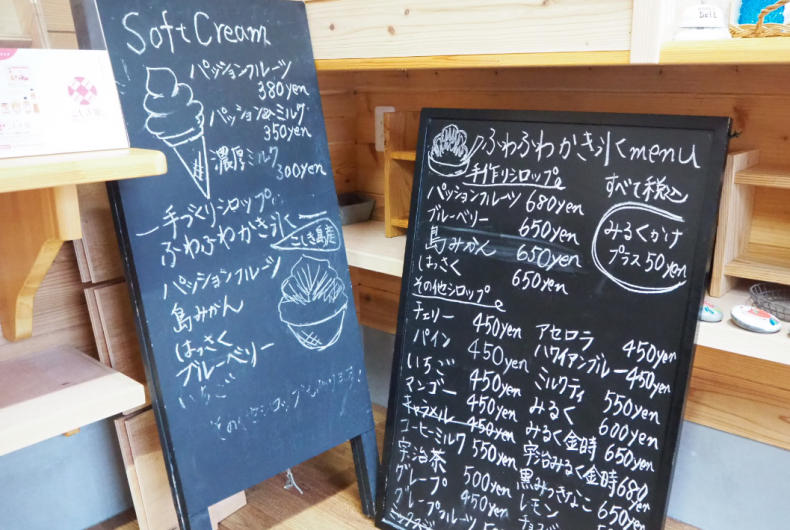 Soft Cream
パッションフルーツ
380yen
パッション&ミルク
350yen
濃厚ミルク
300yen
手づくりシロップ
ふわふわかき氷
こしき島産
パッションフルーツ
島みかん
はっさく
ブルーベリー
いちご
ふわふわかき氷 menu
手作りシロップ
すべて税込
パッションフルーツ 680yen
ブルーベリー 650yen
島みかん 650yen
はっさく 650yen
みるくかけ
プラス50yen
その他シロップ
チェリー 450yen
パイン 450yen
いちご 450yen
マンゴー 450yen
キャラメル 450yen
コーヒーミルク 550yen
宇治茶 500yen
グレープ
グレープフルーツ
アセロラ 450yen
ハワイアンブルー 450yen
ミルクティ 550yen
みるく 600yen
みるく金時 650yen
宇治みるく金時 680
黒みつきなこ
レモン